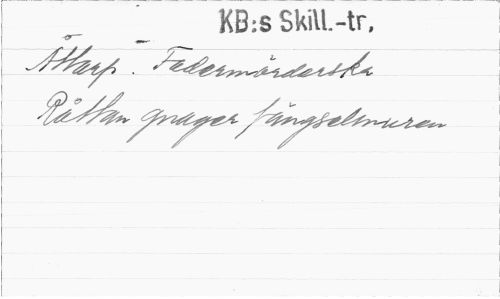 KB:s Skill.-tr.
Åttarp. Fadermörderska
Råttan gnager fängselmuren